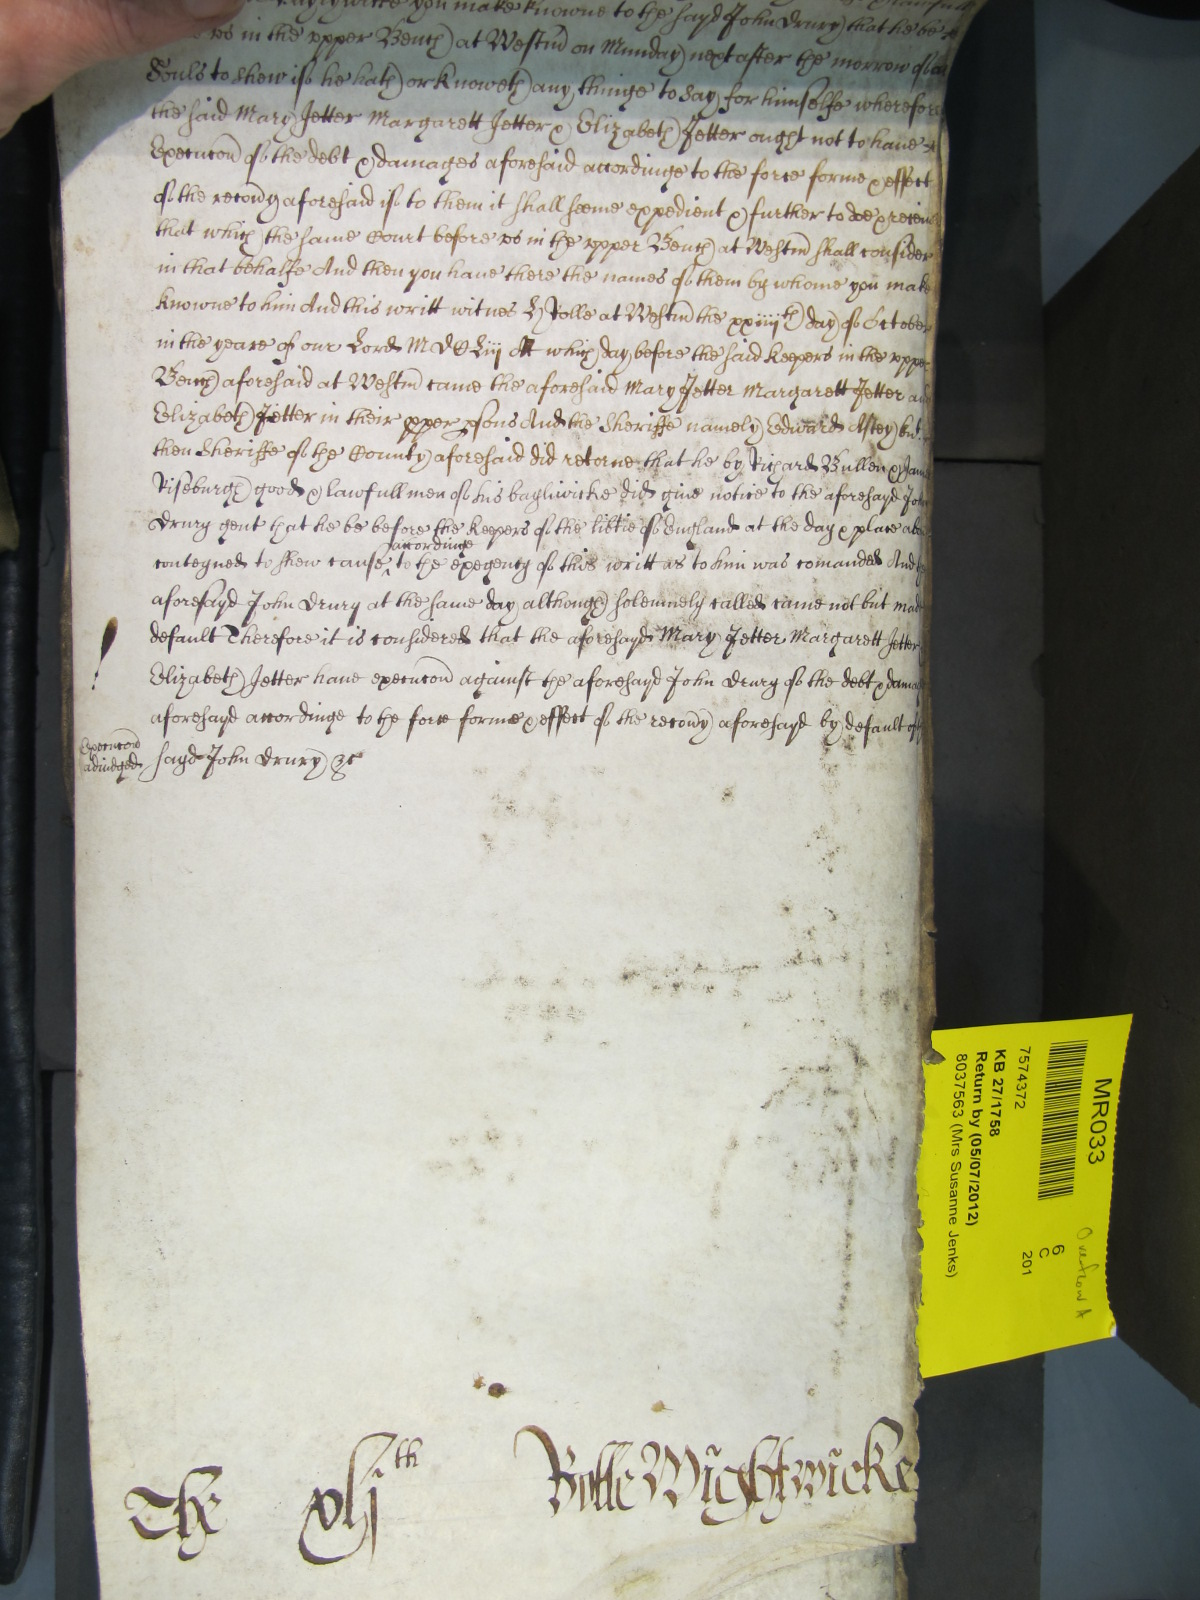 you make knowne to the sayd John Drury that he be
us in the upper Bench at Westm on Munday next after the morrow of
Souls to shew if he hath or knoweth any thinge to say for himselfe wherefore
the said Mary Jetter Margarett Jetter & Elizabeth Jetter ought not to have
Execucon of the debt & damages aforesaid accordinge to the force forme & effect
of the recovy aforesaid if to them it shall seeme expedient & further to doe &
that which the same Court before us in the upper Bench at Westm shall consider
in that behalfe And then you have there the names of them by whome you make
knowne to him And this writt witnes H Rolle at Westm the xxiiiith day of October
in the yeare of our Lord MDCLiij At which day before the said keepers in the upper
Bench aforesaid at Westm came the aforesaid Mary Jetter Margarett Jetter and
Elizabeth Jetter in their pper psons And the Sheriffe namely Edward Astey
then Sheriffe of the County aforesaid did retorne that he by Richard Bullen &
Riseburgh good & lawfull men of his bayliwicke did give notice to the aforesayd John
Drury gent that he be before the keepers of the libtie of England at the day & place
conteyned to shew cause accordinge to the exegency of this writt as to him was comanded And
aforesayd John Drury at the same day although solemnely called came not but made
default Therefore it is considered that the aforesayd Mary Jetter Margarett Jetter
Elizabeth Jetter have execucon against the aforesayd John Drury of the debt &
aforesayd accordinge to the force forme & effect of the recovy aforesayd by default of
sayd John Drury &c
Execucon
adiudged
The xlj th Rolle Wightwicke
MR033
7574372
KB 27/1758
Return by (05/07/2012)
8037563 (Mrs Susanne Jenks)
6
C
201
Overflow A